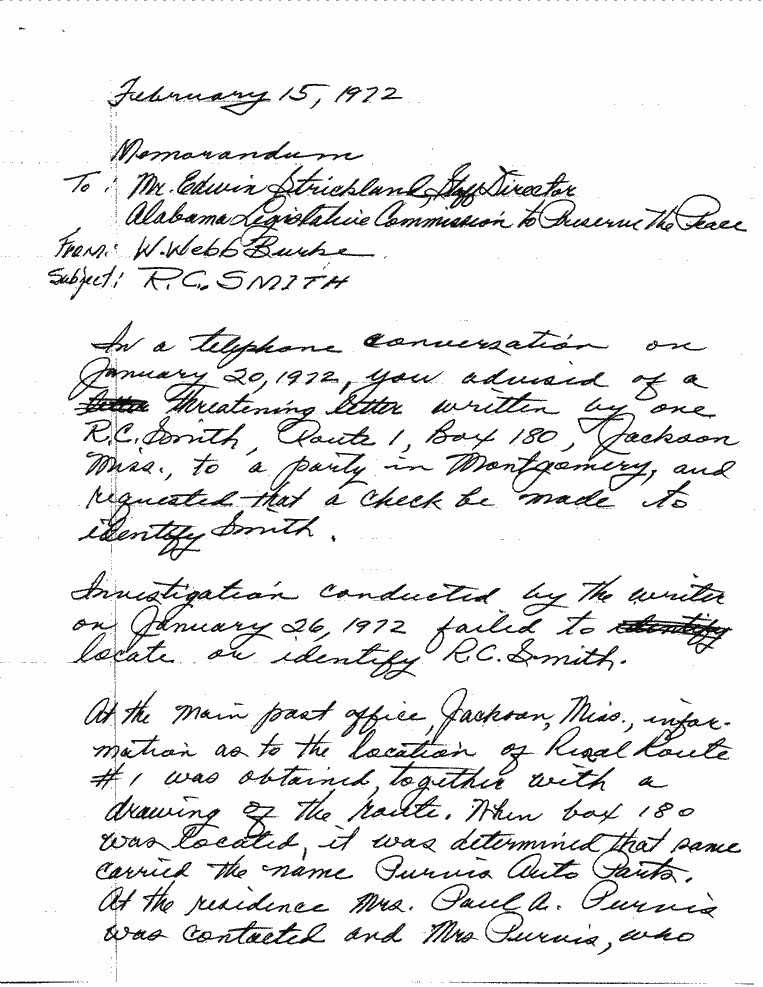 February 15, 1972
Memorandum
To: Mr. Edwin Strickland, Staff Director
Alabama Legislative Commission to Preserve The Peace
From: W. Webb Burke
Subject: R.C. SMITH
In a telephone conversation on
January 20, 1972, you advised of a
letter threatening letter written by one
R.C. Smith, Route 1, Box 180, Jackson
Miss., to a party in Montgomery, and
requested that a check be made to
identify Smith.
Investigation conducted by the writer
on January 26, 1972 failed to identify
locate or identify R.C. Smith.
At the main post office, Jackson, Miss., infor-
mation as to the location of Rural Route
#1 was obtained, together with a
drawing of the route. When box 180
was located, it was determined that same
carried the name Purvis Auto Parts.
At the residence Mrs. Paul A. Purvis
was contacted and Mrs Purvis, who